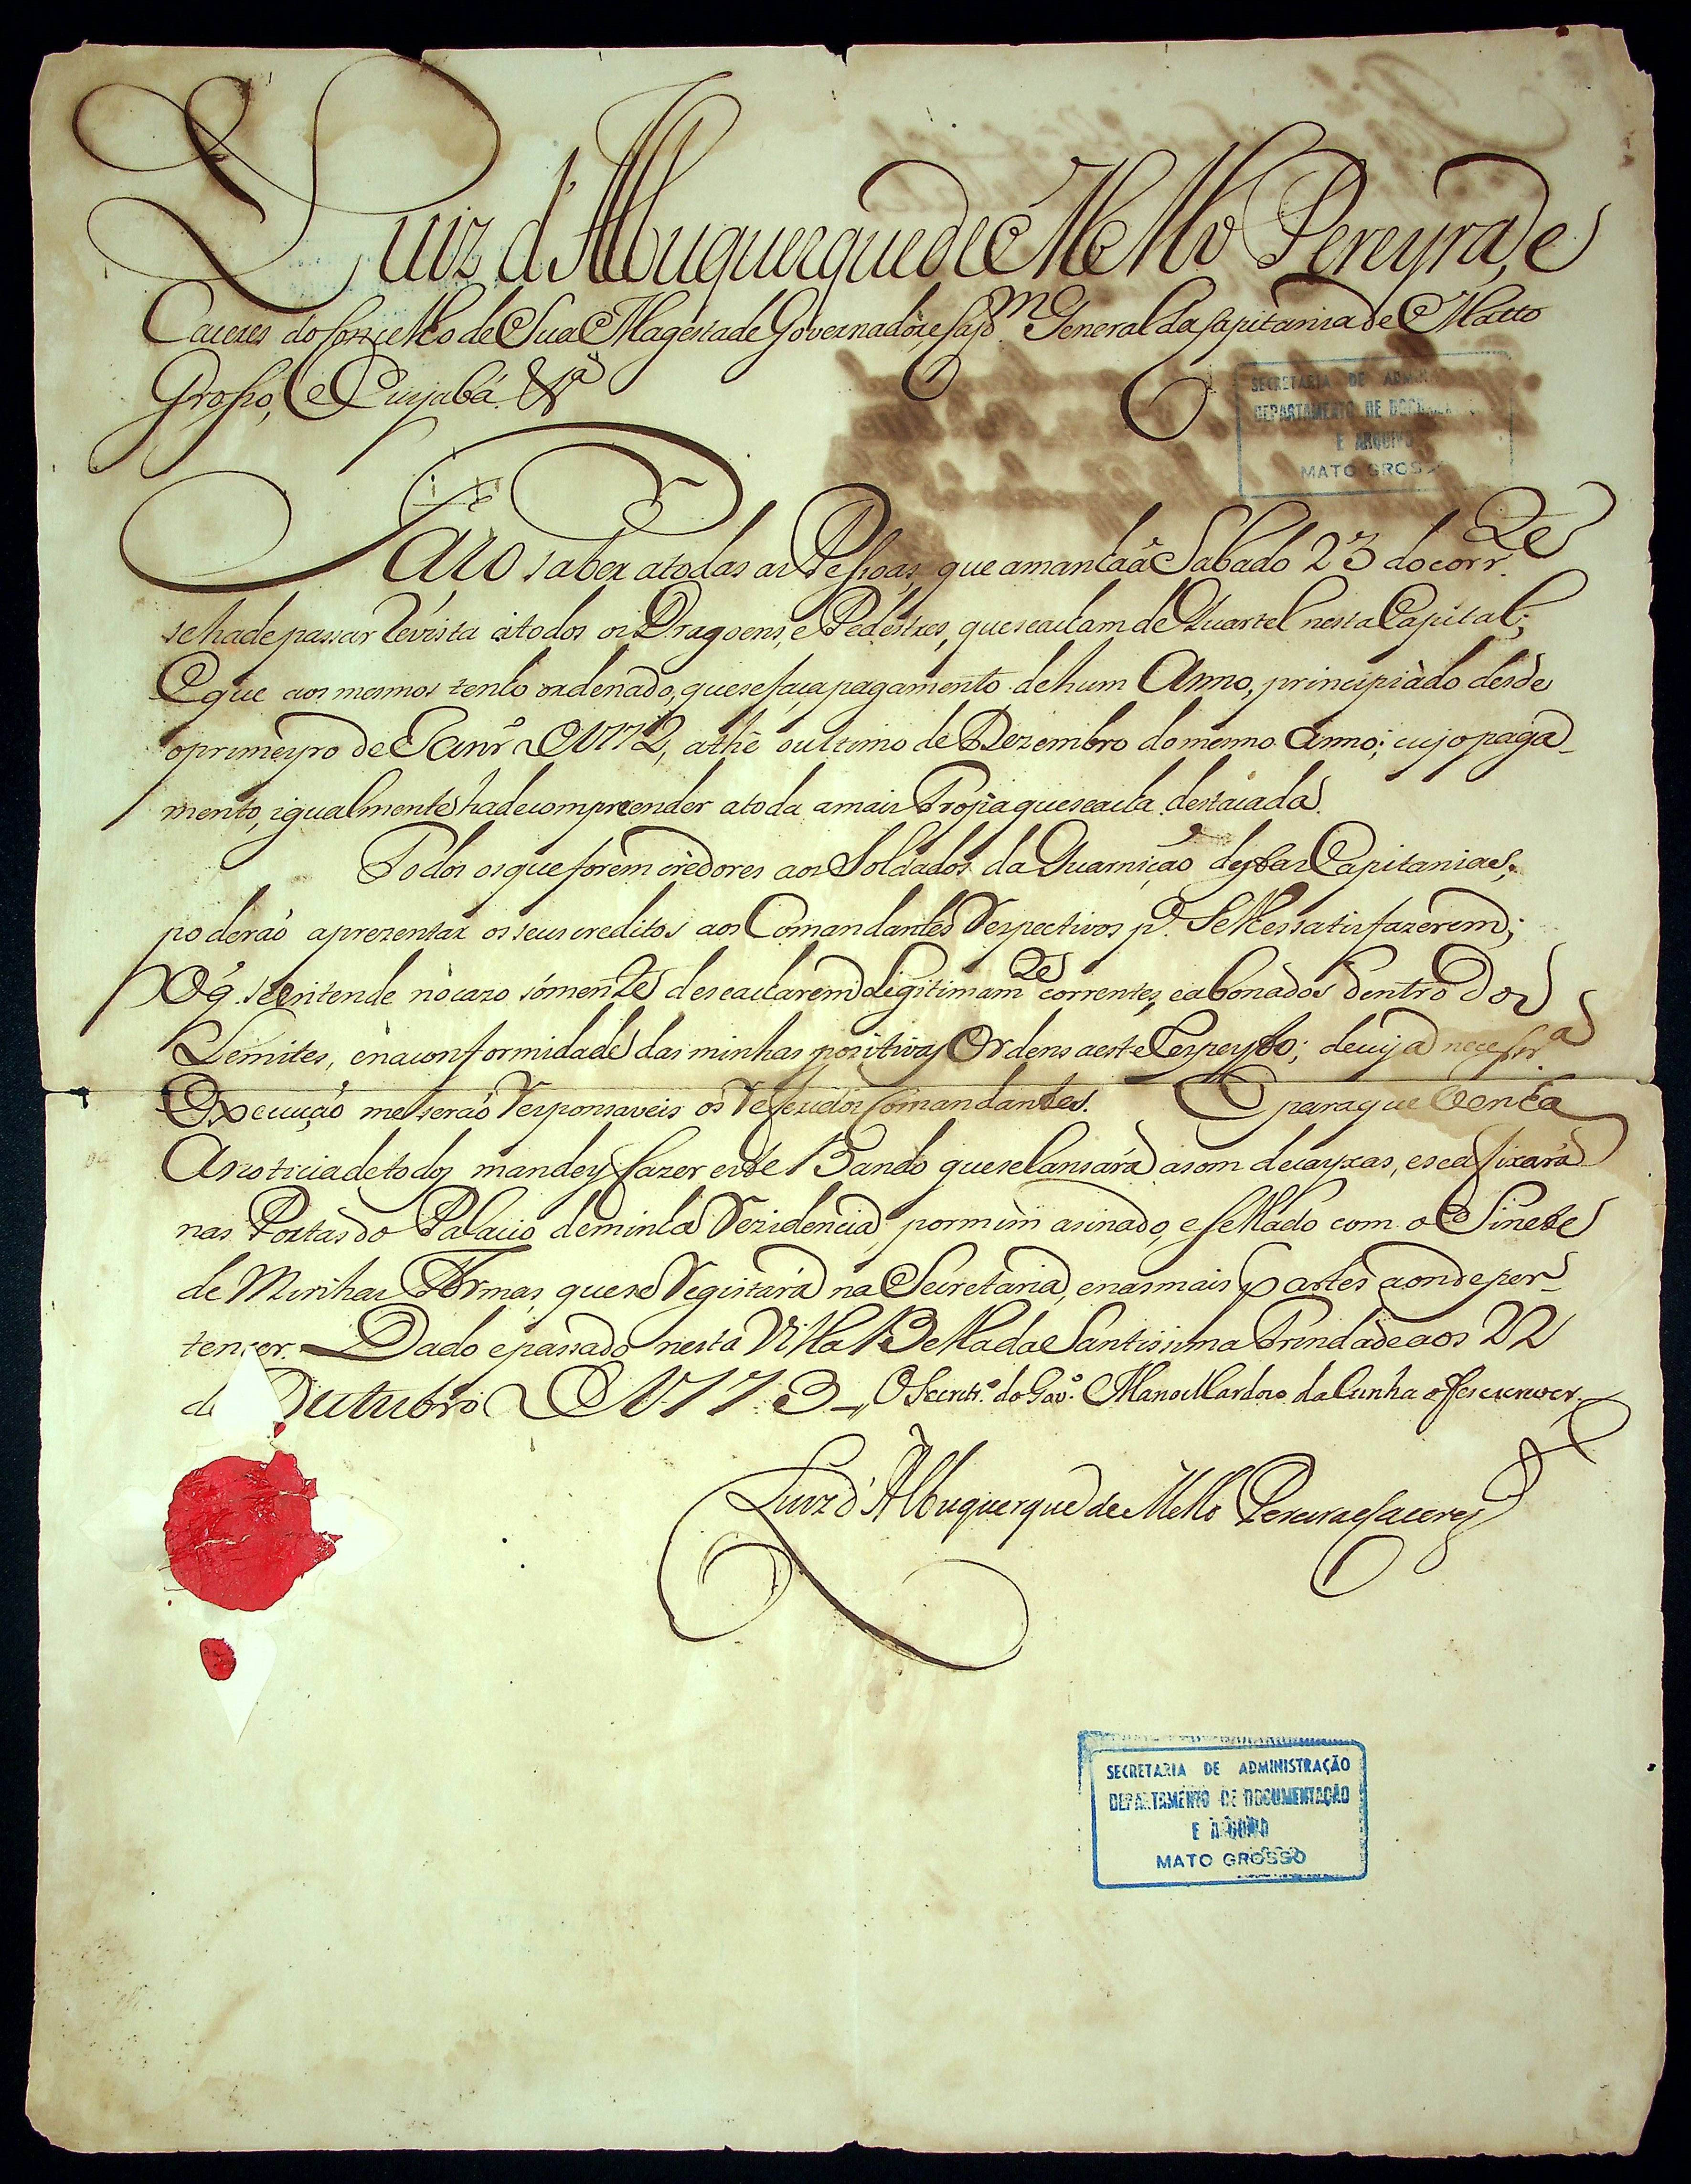 Luiz d'Albuquerque de Mello Pereyra, e
Caceres do Conçelho de Sua Magestade Governador, e Cap.m General da Capitania de Matto
Grosso, e Cuyabá. &.ª
SECRETARIA DE ADMIN
DEPARTAMENTO DE DOCUMEN
E ARQUIVO
MATO GROSS
Fazo saber a todas as Pessoas, que amanhaã Sabado 23 do corr.te
se hade passar Revista a todos os Dragoens, e Pedestres, que se acham de Quartel nesta Capital;
E que aos mesmos tenho ordenado, que se faça pagamento de hum Anno, principiado desde
o primeyro de Janr.º de 1772, athé o ultimo de Dezembro do mesmo Anno; cujo paga-
mento, igualmente hade comprender a toda a mais Tropa que se acha destacada.
Todos os que forem crèdores aos Soldados da Guarnição destas Capitanias,
poderáõ aprezentar os seus creditos aos Comandantes Respectivos p.ª se lhes satisfazerem;
O q̃ se entende no cazo sómente de se acharem legitimam.te correntes, e abonados dentro dos
Lemites, e na conformidade das minhas positivas Ordens a este Respeyto; de cuja necessr.ª
Execuçáo me seráo Responsaveis os Referidos Comandantes. E para que venha
A noticia de todos mandey fazer este Bando que se lansará a som de cayxas, e se afixará
nas Portas do Palacio de minha Rezidencia por mim asinado, e sellado com o Sinete
de Minhas Armas, que se Registará na Secretaria, e nas mais partes aonde per-
tencer. Dado e passado nesta Villa Bella da Santissima Trindade aos 22
de Outubro de 1773 O Secretr.º do Gov.º Manoel Cardozo da Cunha o fes escrever.
Luiz d'Albuquerque de Mello Pereira e Caceres
SECRETARIA DE ADMINISTRAÇÃO
DEPARTAMENTO DE DOCUMENTAÇÃO
E ARQUIVO
MATO GROSSO